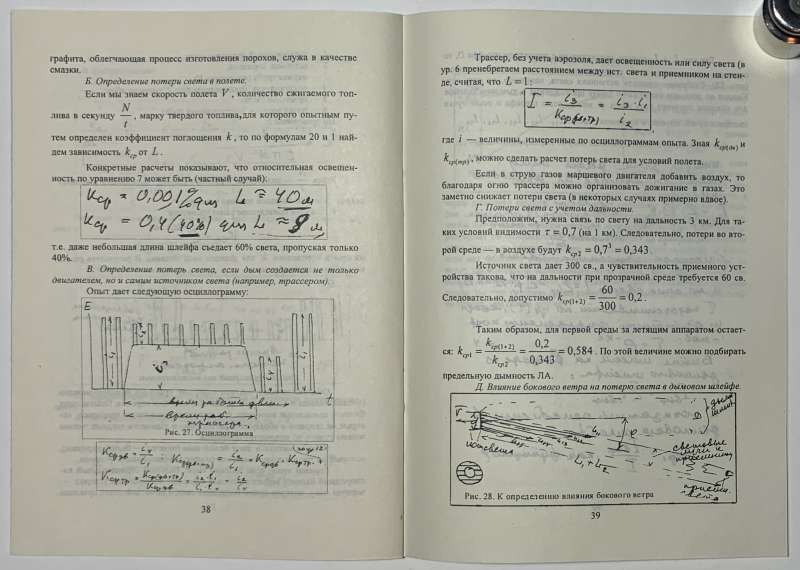 графита, облегчающая процесс изготовления порохов, служа в качестве
смазки.
Б. Определение потери света в полете.
Если мы знаем скорость полета V, количество сжигаемого топ-
лива в секунду N/i, марку твердого топлива, для которого опытным пу-
тем определен коэффициент поглощения k, то по формулам 20 и 1 най-
дем зависимость kср от L.
Конкретные расчеты показывают, что относительная освещен-
ность по уравнению 7 может быть (частный случай):
Kср = 0,001% для L ≅ 40 м
Kср = 0,4 (40%) для L ≈ 8 м
т.е. даже небольшая длина шлейфа съедает 60% света, пропуская только
40%.
В. Определение потерь света, если дым создается не только
двигателем, но и самим источником света (например, трассером).
Опыт дает следующую осциллограмму:
E
t
время работы двиг.
время раб.
Рис. 27. Осциллограмма
38
Трассер, без учета аэрозоля, дает освещенность или силу света (в
ур. 6 пренебрегаем расстоянием между ист. света и приемником на стен-
де, считая, что L = 1:
где i — величины, измеренные по осциллограммам опыта. Зная kср(дв) и
kср(тр), можно сделать расчет потерь света для условий полета.
Если в струю газов маршевого двигателя добавить воздух, то
благодаря огню трассера можно организовать дожигание в газах. Это
заметно снижает потери света (в некоторых случаях примерно вдвое).
Г. Потери света с учетом дальности.
Предположим, нужна связь по свету на дальность 3 км. Для та-
ких условий видимости τ = 0,7 (на 1 км). Следовательно, потери во вто-
рой среде — в воздухе будут kср2 = 0,7³ = 0,343.
Источник света дает 300 св., а чувствительность приемного уст-
ройства такова, что на дальности при прозрачной среде требуется 60 св.
Следовательно, допустимо kср(1+2) = 60/300 = 0,2.
Таким образом, для первой среды за летящим аппаратом остает-
ся: kср1 = kср(1+2)/kср2 = 0,2/0,343 = 0,584. По этой величине можно подбирать
предельную дымность ЛА.
Д. Влияние бокового ветра на потерю света в дымовом шлейфе.
V
L1 + L2
световые
Рис. 28. К определению влияния бокового ветра
39